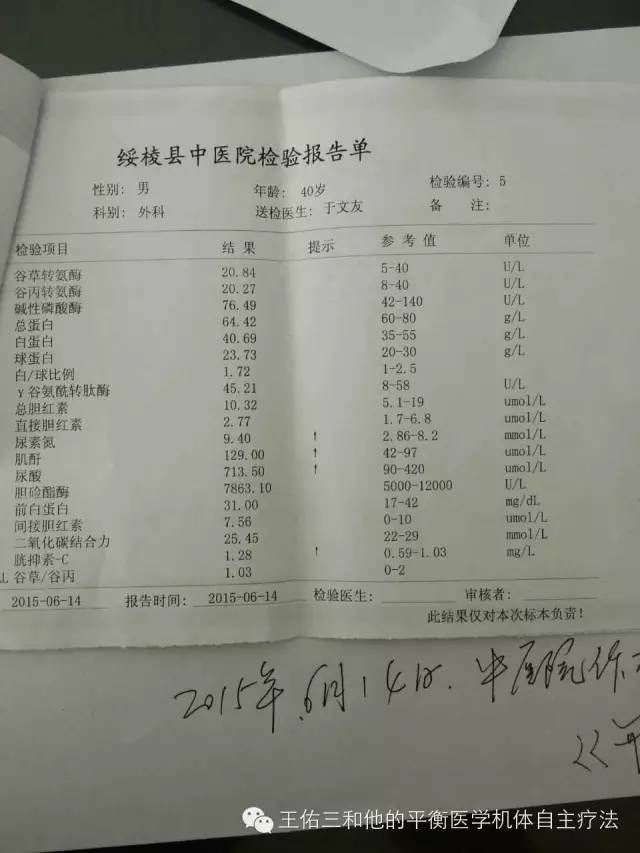 绥棱县中医院检验报告单
性别: 男 年龄: 40岁 检验编号: 5
科别: 外科 送检医生: 于文友 备 注:
检验项目 结 果 提示 参 考 值 单位
谷草转氨酶 20.84 5-40 U/L
谷丙转氨酶 20.27 8-40 U/L
碱性磷酸酶 76.49 42-140 U/L
总蛋白 64.42 60-80 g/L
白蛋白 40.69 35-55 g/L
球蛋白 23.73 20-30 g/L
白/球比例 1.72 1-2.5
γ谷氨酰转肽酶 45.21 8-58 U/L
总胆红素 10.32 5.1-19 umol/L
直接胆红素 2.77 1.7-6.8 umol/L
尿素氮 9.40 ↑ 2.86-8.2 mmol/L
肌酐 129.00 ↑ 42-97 umol/L
尿酸 713.50 ↑ 90-420 umol/L
胆硷酯酶 7863.10 5000-12000 U/L
前白蛋白 31.00 17-42 mg/dL
间接胆红素 7.56 0-10 umol/L
二氧化碳结合力 25.45 22-29 mmol/L
胱抑素-C 1.28 ↑ 0.59-1.03 mg/L
谷草/谷丙 1.03 0-2
2015-06-14 报告时间: 2015-06-14 检验医生: 审核者:
此结果仅对本次标本负责!
2015年.6月14日.中医院
王佑三和他的平衡医学机体自主疗法